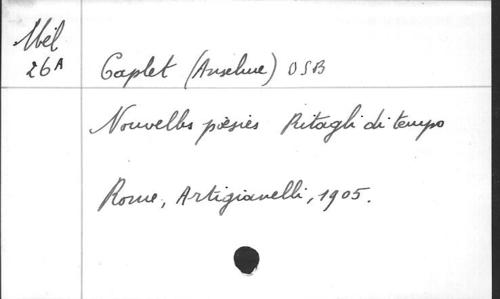 Mél
26A
Caplet (Anselme) OSB
Nouvelles poésies Ritagli di tempo
Rome, Artigianelli, 1905.